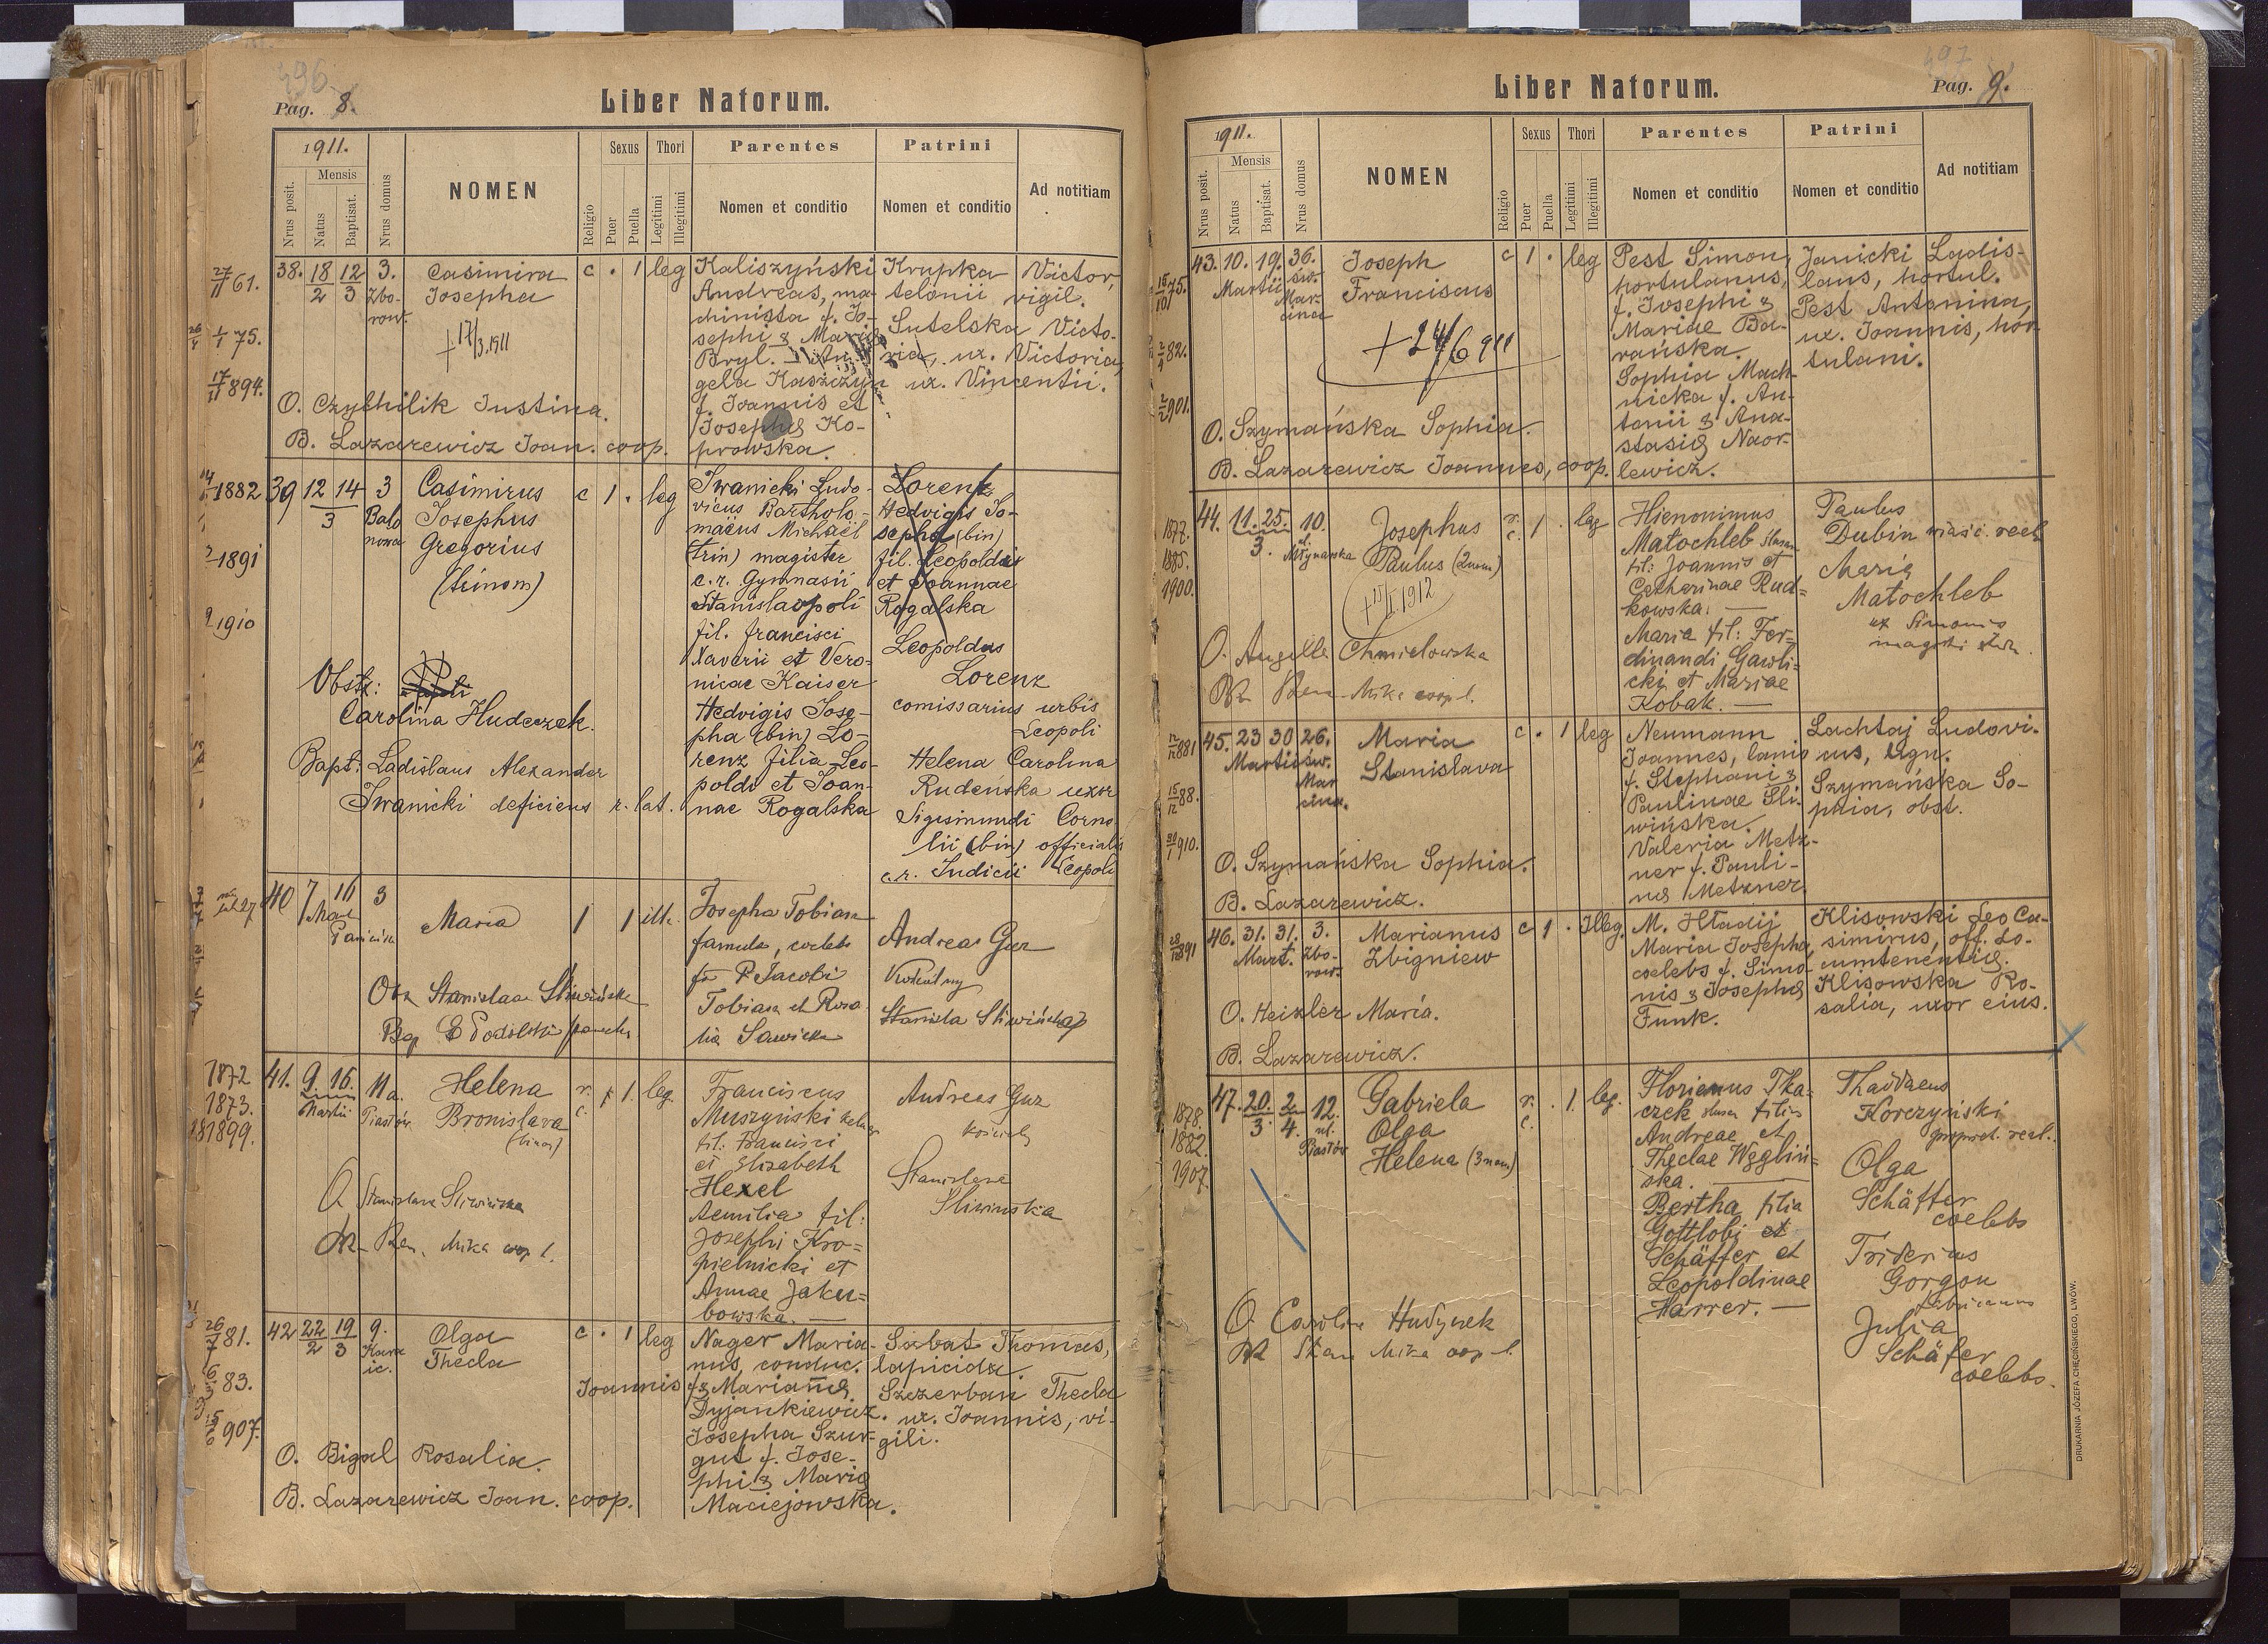 Pag. 8.
Liber Natorum.
1911.
Nrus posit.
Mensis
Natus
Baptisat.
Nrus domus
NOMEN
Religio
Sexus
Puer
Puella
Thori
Legitimi
Illegitimi
Parentes
Nomen et conditio
Patrini
Nomen et conditio
Ad notitiam
61.
75.
894.
38. 18/2 12/3 3. Zbo-
row.
Casimira
Josepha
+ 17/3.1911
c . 1 leg
Kaliszyński
Andreas, ma-
chinista f. Jo-
sephi & Marię
Bryl. — An-
gela Kaszczyn
f. Joannis et
Josephę Ko-
prowska.
Krupka Victor,
telonii vigil.
Sutelska Victo-
ria, ux. Victoria,
ux. Vincentii.
O. Czythilik Justina.
B. Lazarewicz Joan. coop.
1882
1891
1910
39 12 14 3
3
Bato
nowa
Casimirus
Josephus
Gregorius
(trinom)
c 1 . leg
Iwanicki Ludo-
vicus Bartholo-
maeus Michael
(trin) magister
c.r. Gymnasii
Stanislaopoli
fil. Francisci
Xaverii et Vero-
nicae Kaiser
Hedvigis Jose-
pha (bin) Lo-
renz filia Leo-
poldi et Joan-
nae Rogalska
Lorenz
Hedvigis Jo-
sepha (bin)
fil. Leopoldi
et Joannae
Rogalska
Leopoldus
Lorenz
comissarius urbis
Leopoli
Helena Carolina
Rudeńska uxor
Sigismundi Corne
lii (bin) officialis
c.r. Judicii Leopoli
Obstr:
Carolina Hudeczek.
Bapt: Ladislaus Alexander
Iwanicki deficiens r. lat.
40 7 16 3
Mar
Maria
1 1 ille.
Josepha Tobiasz
famula, coelebs
fa P Jacobi
Tobiasz et Rosa
lia Sawicka
Andreas Gur
Stanisla Sliwińska
Obs Stanislaa Sliwińska
Bap
1872
1873.
1899.
41. 9. 16. 11a.
Martii Piastów
Helena
Bronislava
(binom)
r. c. 1. leg.
Franciscus
Muszyński
fil: Francisci
et Elizabeth
Hexel
Aemilia fil:
Josephi Kro=
pielnicki et
Annae Jaku=
bowska. —
Andreas Gur
kościeln
Stanislava
Sliwinska
O. Stanislava Sliwińska
Bz. Mika coop l.
81.
83.
907.
42 22/2 19/3 9.
Olga
Thecla
c . 1 leg
Nager Maria-
nus, conduc.
Joannis f & Mariannę
Dyjankiewicz.
Josepha Szur-
gut f. Jose-
phi & Marię
Maciejowska.
Sabat Thomas,
lapicida
Szczerban Thecla
ux. Joannis, vi-
gili.
O. Bigal Rosalia.
B. Lazarewicz Joan. coop.
Liber Natorum.
Pag. 9.
1911.
Nrus posit.
Mensis
Natus
Baptisat.
Nrus domus
NOMEN
Religio
Sexus
Puer
Puella
Thori
Legitimi
Illegitimi
Parentes
Nomen et conditio
Patrini
Nomen et conditio
Ad notitiam
75.
82.
901.
43. 10. 19. 36.
Martii św.
Mar-
cina
Joseph
Franciscus
+ 24/6 911
c 1 . leg
Pest Simon,
hortulanus,
f. Josephi &
Mariae Ba-
rańska.
Sophia Mach-
nicka f. An-
tonii & Ana-
stasię Naor-
lewicz.
Janicki Ladis-
laus, hortul.
Pest Antonina,
ux. Joannis, hor-
tulani.
O. Szymańska Sophia.
B. Lazarewicz Joannes, coop.
1877.
1885.
1900.
44. 11. 25. 10.
3. ul.
Młynarska
Josephus
Paulus (2nom)
+15/I 1912
r. c. 1 . leg
Hieronimus
Matochleb
fil: Joannis et
Catherinae Rud=
kowska. —
Maria fil: Fer=
dinandi Gawli=
cki et Mariae
Kobak. —
Paulus
Dubin właśc. real
Maria
Matochleb
ux Simonis
O. Angella Chmielowska
Mika coop l.
881
88.
910.
45. 23 30 26.
Martii św.
Mar
cina.
Maria
Stanislava
c . 1 leg
Neumann
Joannes, lanio
f. Stephani &
Paulinae Sli-
wińska.
Valeria Metz-
ner f. Pauli-
nę Metzner.
Lachtaj Ludovi-
cus, lign.
Szymańska So-
phia, obst.
O. Szymańska Sophia.
B. Lazarewicz.
891
46. 31. 31. 3.
Mart. Zbo-
row.
Marianus
Zbigniew
c 1 . Illeg.
M. Hładij
Maria Josepha,
coelebs f. Simo-
nis & Josephę
Funk.
Klisowski Leo Ca-
simirus, off. Lo-
cumtenentię.
Klisowska Ro-
salia, uxor eius.
O. Heixler Maria.
B. Lazarewicz.
1878.
1882.
1907.
47. 20. 2. 12.
3. 4. ul.
Piastów
Gabriela
Olga
Helena (3nom)
r. c. . 1. leg.
Florianus Tka=
czek filius
Andreae et
Theclae Węgliń=
ska. —
Bertha filia
Gottlobi et
Schäffer et
Leopoldinae
Harrer. —
Thaddaeus
Korczyński
propriet. real.
Olga
Schäffer
coelebs
Fridericus
Gorgon
Julia
Schäfer
coelebs.
O. Carolina Hudyzek
Mika coop l.
DRUKARNIA JÓZEFA CHĘCIŃSKIEGO, LWÓW.